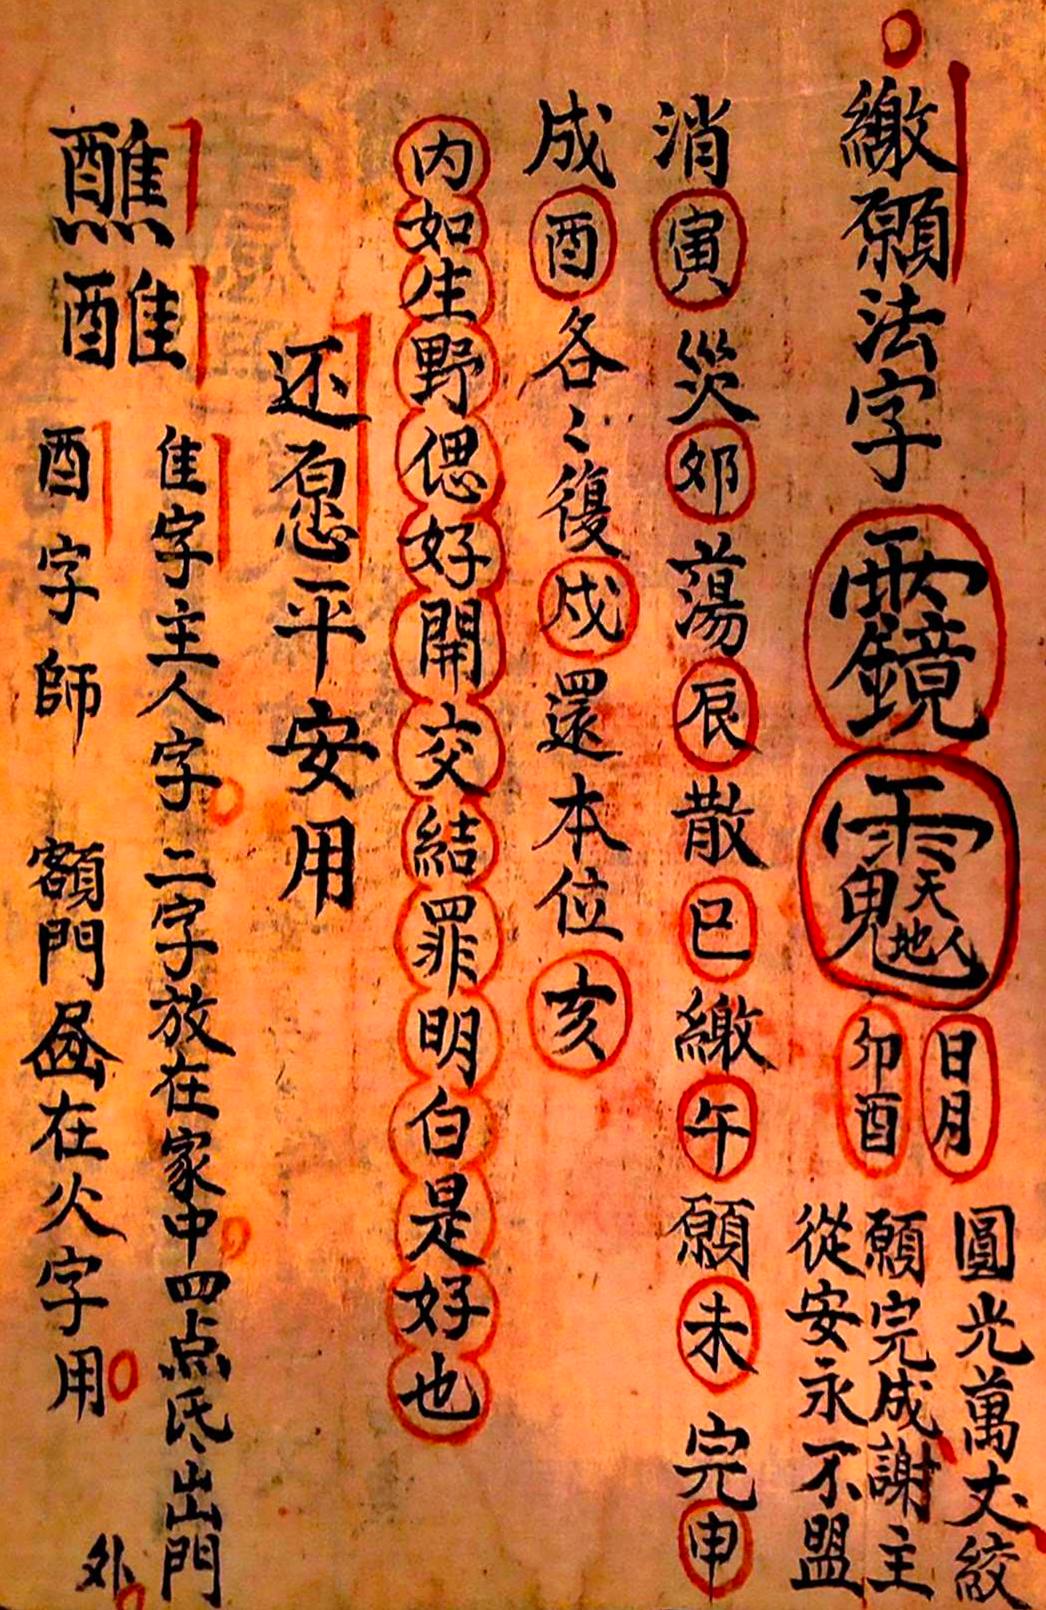 繳願法字
日月
卯酉
圓光萬丈絞
願完成謝主
從安永不盟
消寅災卯蕩辰散巳繳午願未完申
成酉各々復戌還本位亥
内如生野偲好開交結罪明白是好也
还愿平安用
醮
隹字主人字二字放在家中四点氏出門外
酉字師 額門 在火字用